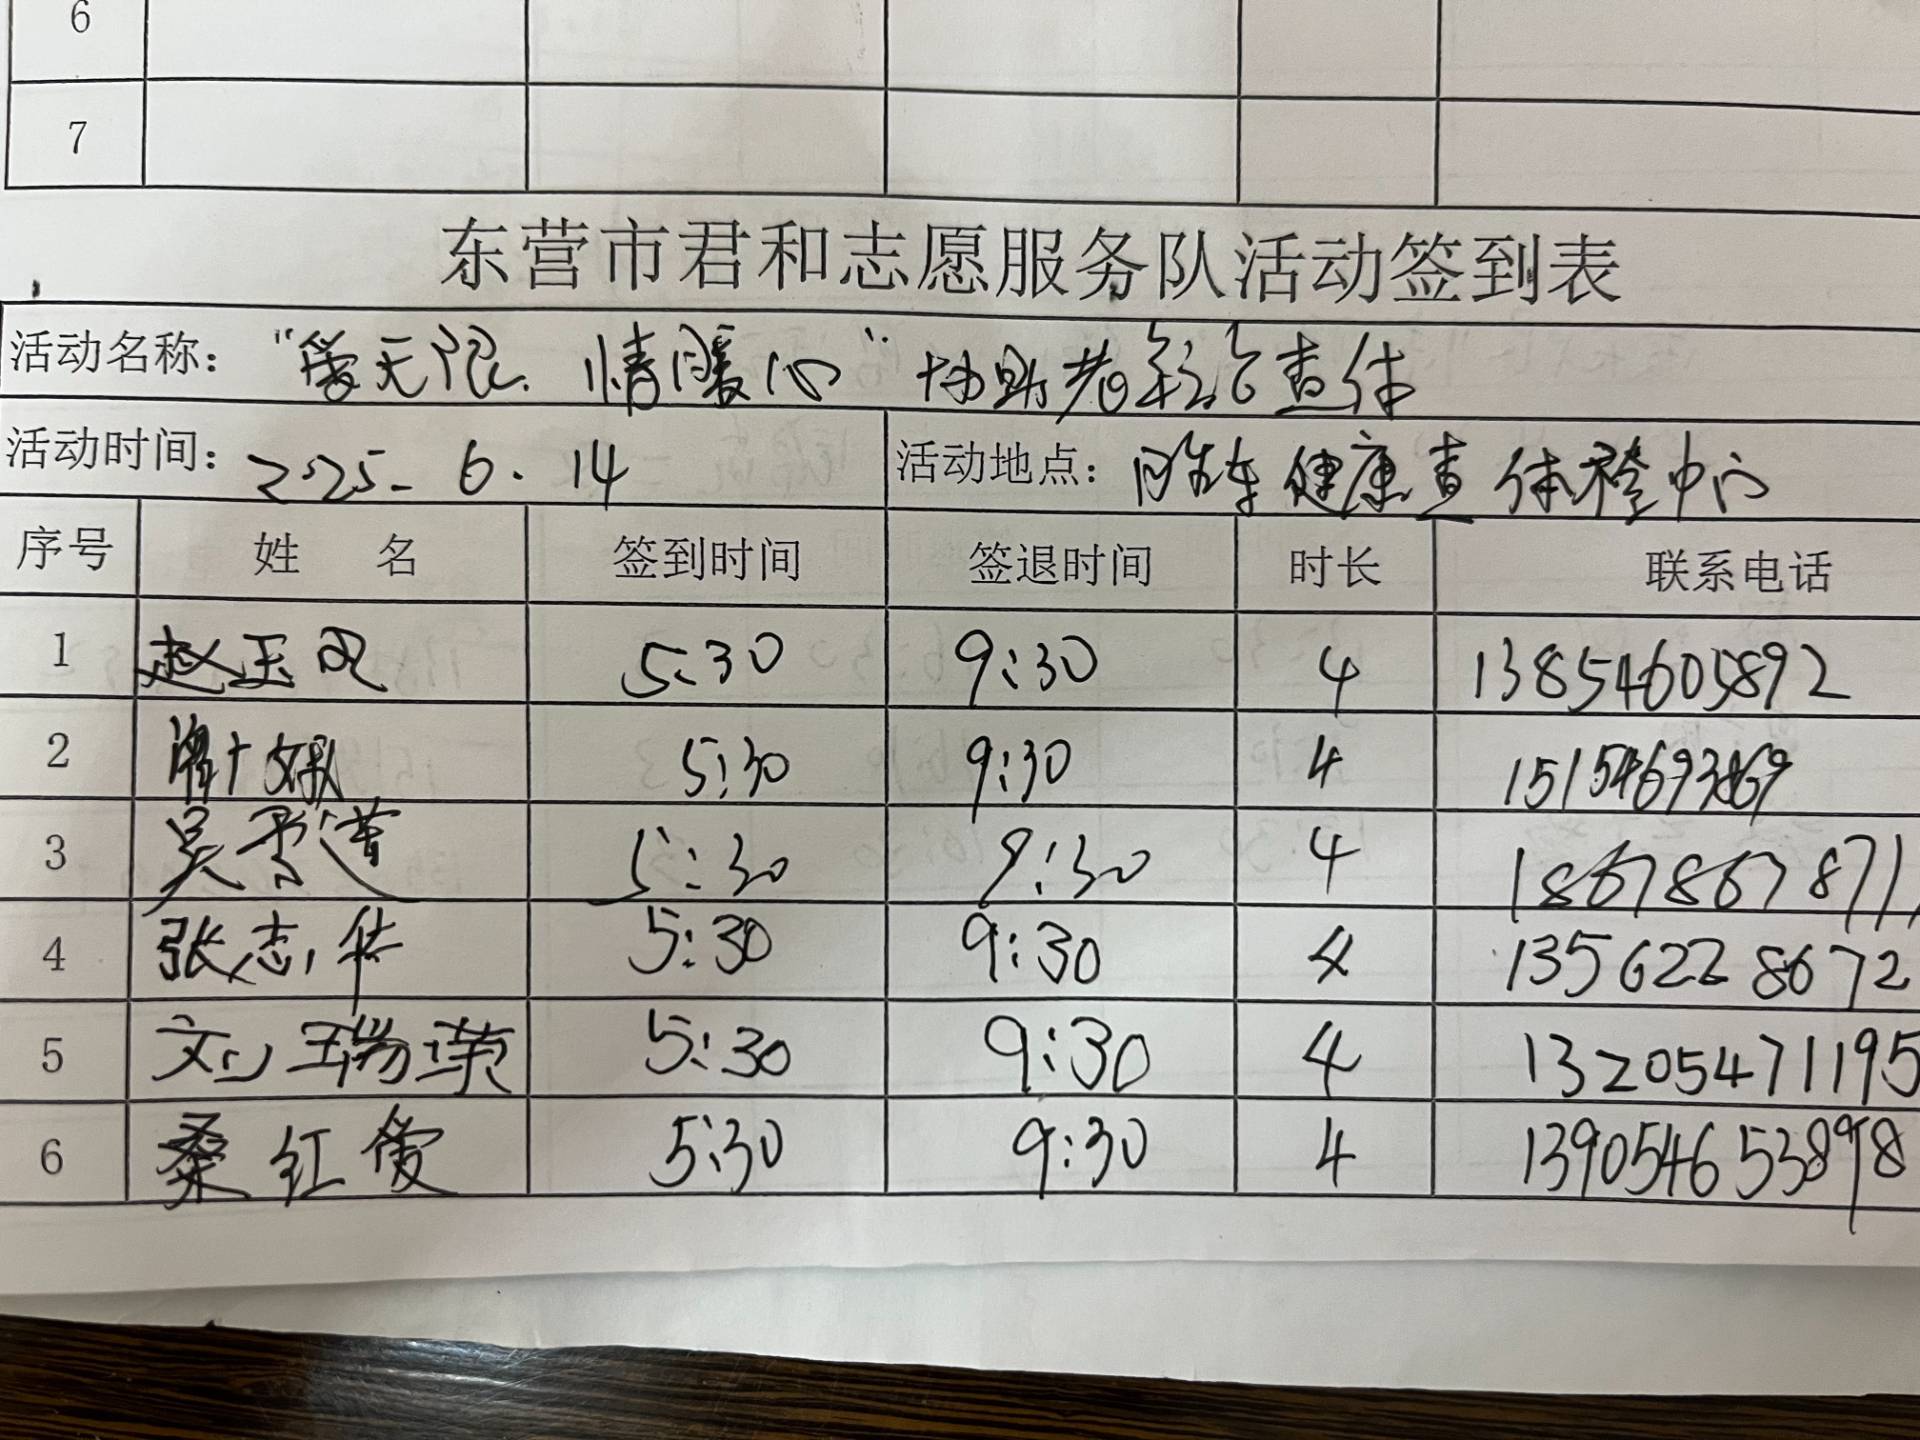 6
7
东营市君和志愿服务队活动签到表
活动名称： “爱无限.情暖心” 协助老年人查体
活动时间： 2025.6.14 活动地点： 胜东健康查体中心
序号 姓 名 签到时间 签退时间 时长 联系电话
1 赵玉 5:30 9:30 4 13854605892
2 5:30 9:30 4 15154693869
3 吴秀莲 5:30 9:30 4 18678678711
4 张志华 5:30 9:30 4 13562228672
5 刘瑞萍 5:30 9:30 4 13205471195
6 桑红爱 5:30 9:30 4 139054653898